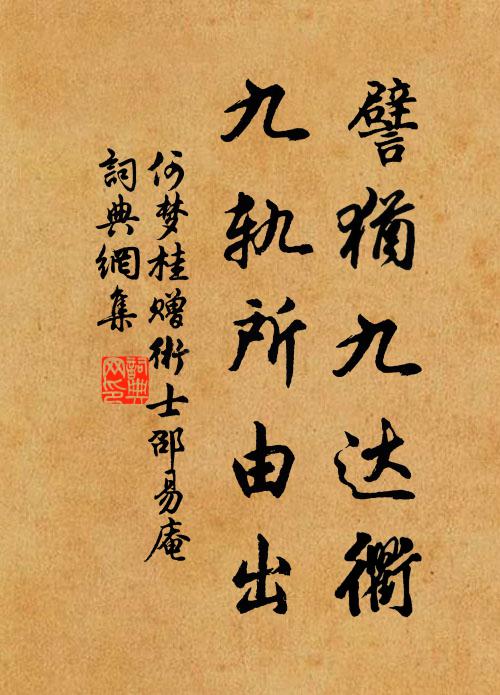 譬犹九达衢
九轨所由出
何梦桂赠術士邵易庵
詞典網集
詞典
网印